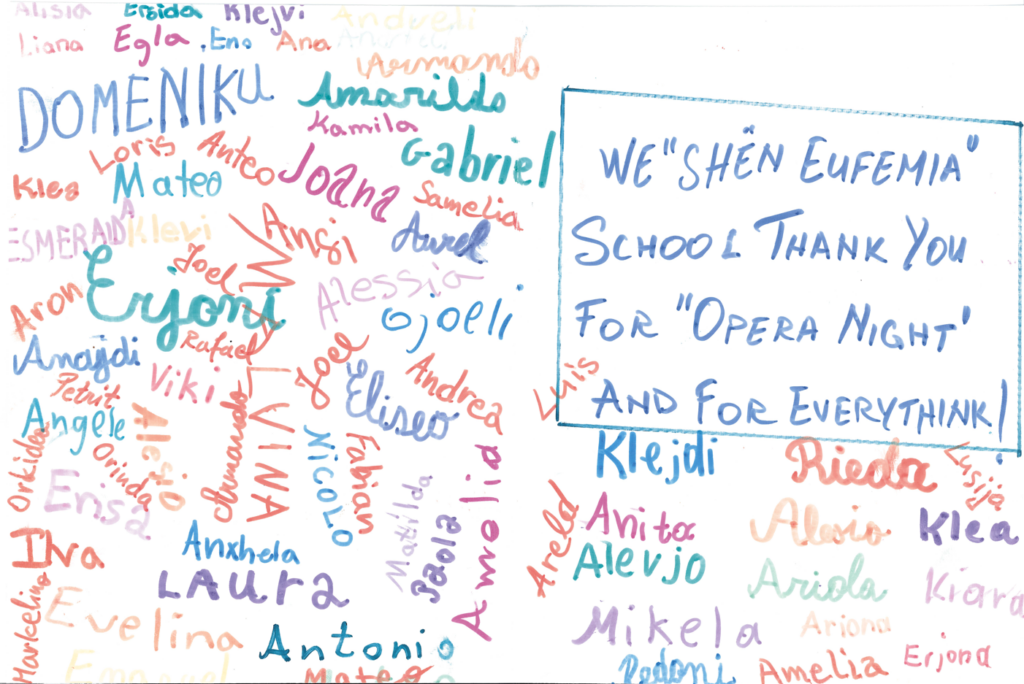 Alisia Ersida Klejvi Andueli
Liana Egla Eno Ana
Armando
DOMENIKU Amarildo
Kamila
Loris Anteo Gabriel
Klea Mateo Joana
Samelia
ESMERALDA Klevi Angi Aurel
Joel
Erjoni Alessia
Aron ojoeli
Anajdi Rafael Joel
Petrit Viki Andrea
Eliseo
Angele Alesio Armando
Orkidea Orinda Nicolo Fabian
Enisa Matilda Paola Arnolid
Ilva Anxhela
LAURA
Markelino Evelina
Antonio
Emanuel Mateo
WE "SHËN EUFEMIA"
SCHOOL THANK YOU
FOR "OPERA NIGHT'
AND FOR EVERYTHINK!
Luis
Klejdi Rieda Lusija
Areld Anita Alesio Klea
Alevjo Ariola Kiara
Mikela Ariona
Dedoni Amelia Erjona